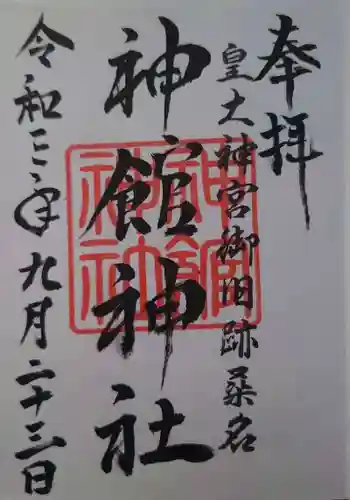 奉拝
皇大神宮御旧跡桑名
神館神社
令和三年九月二十三日
神館
神社